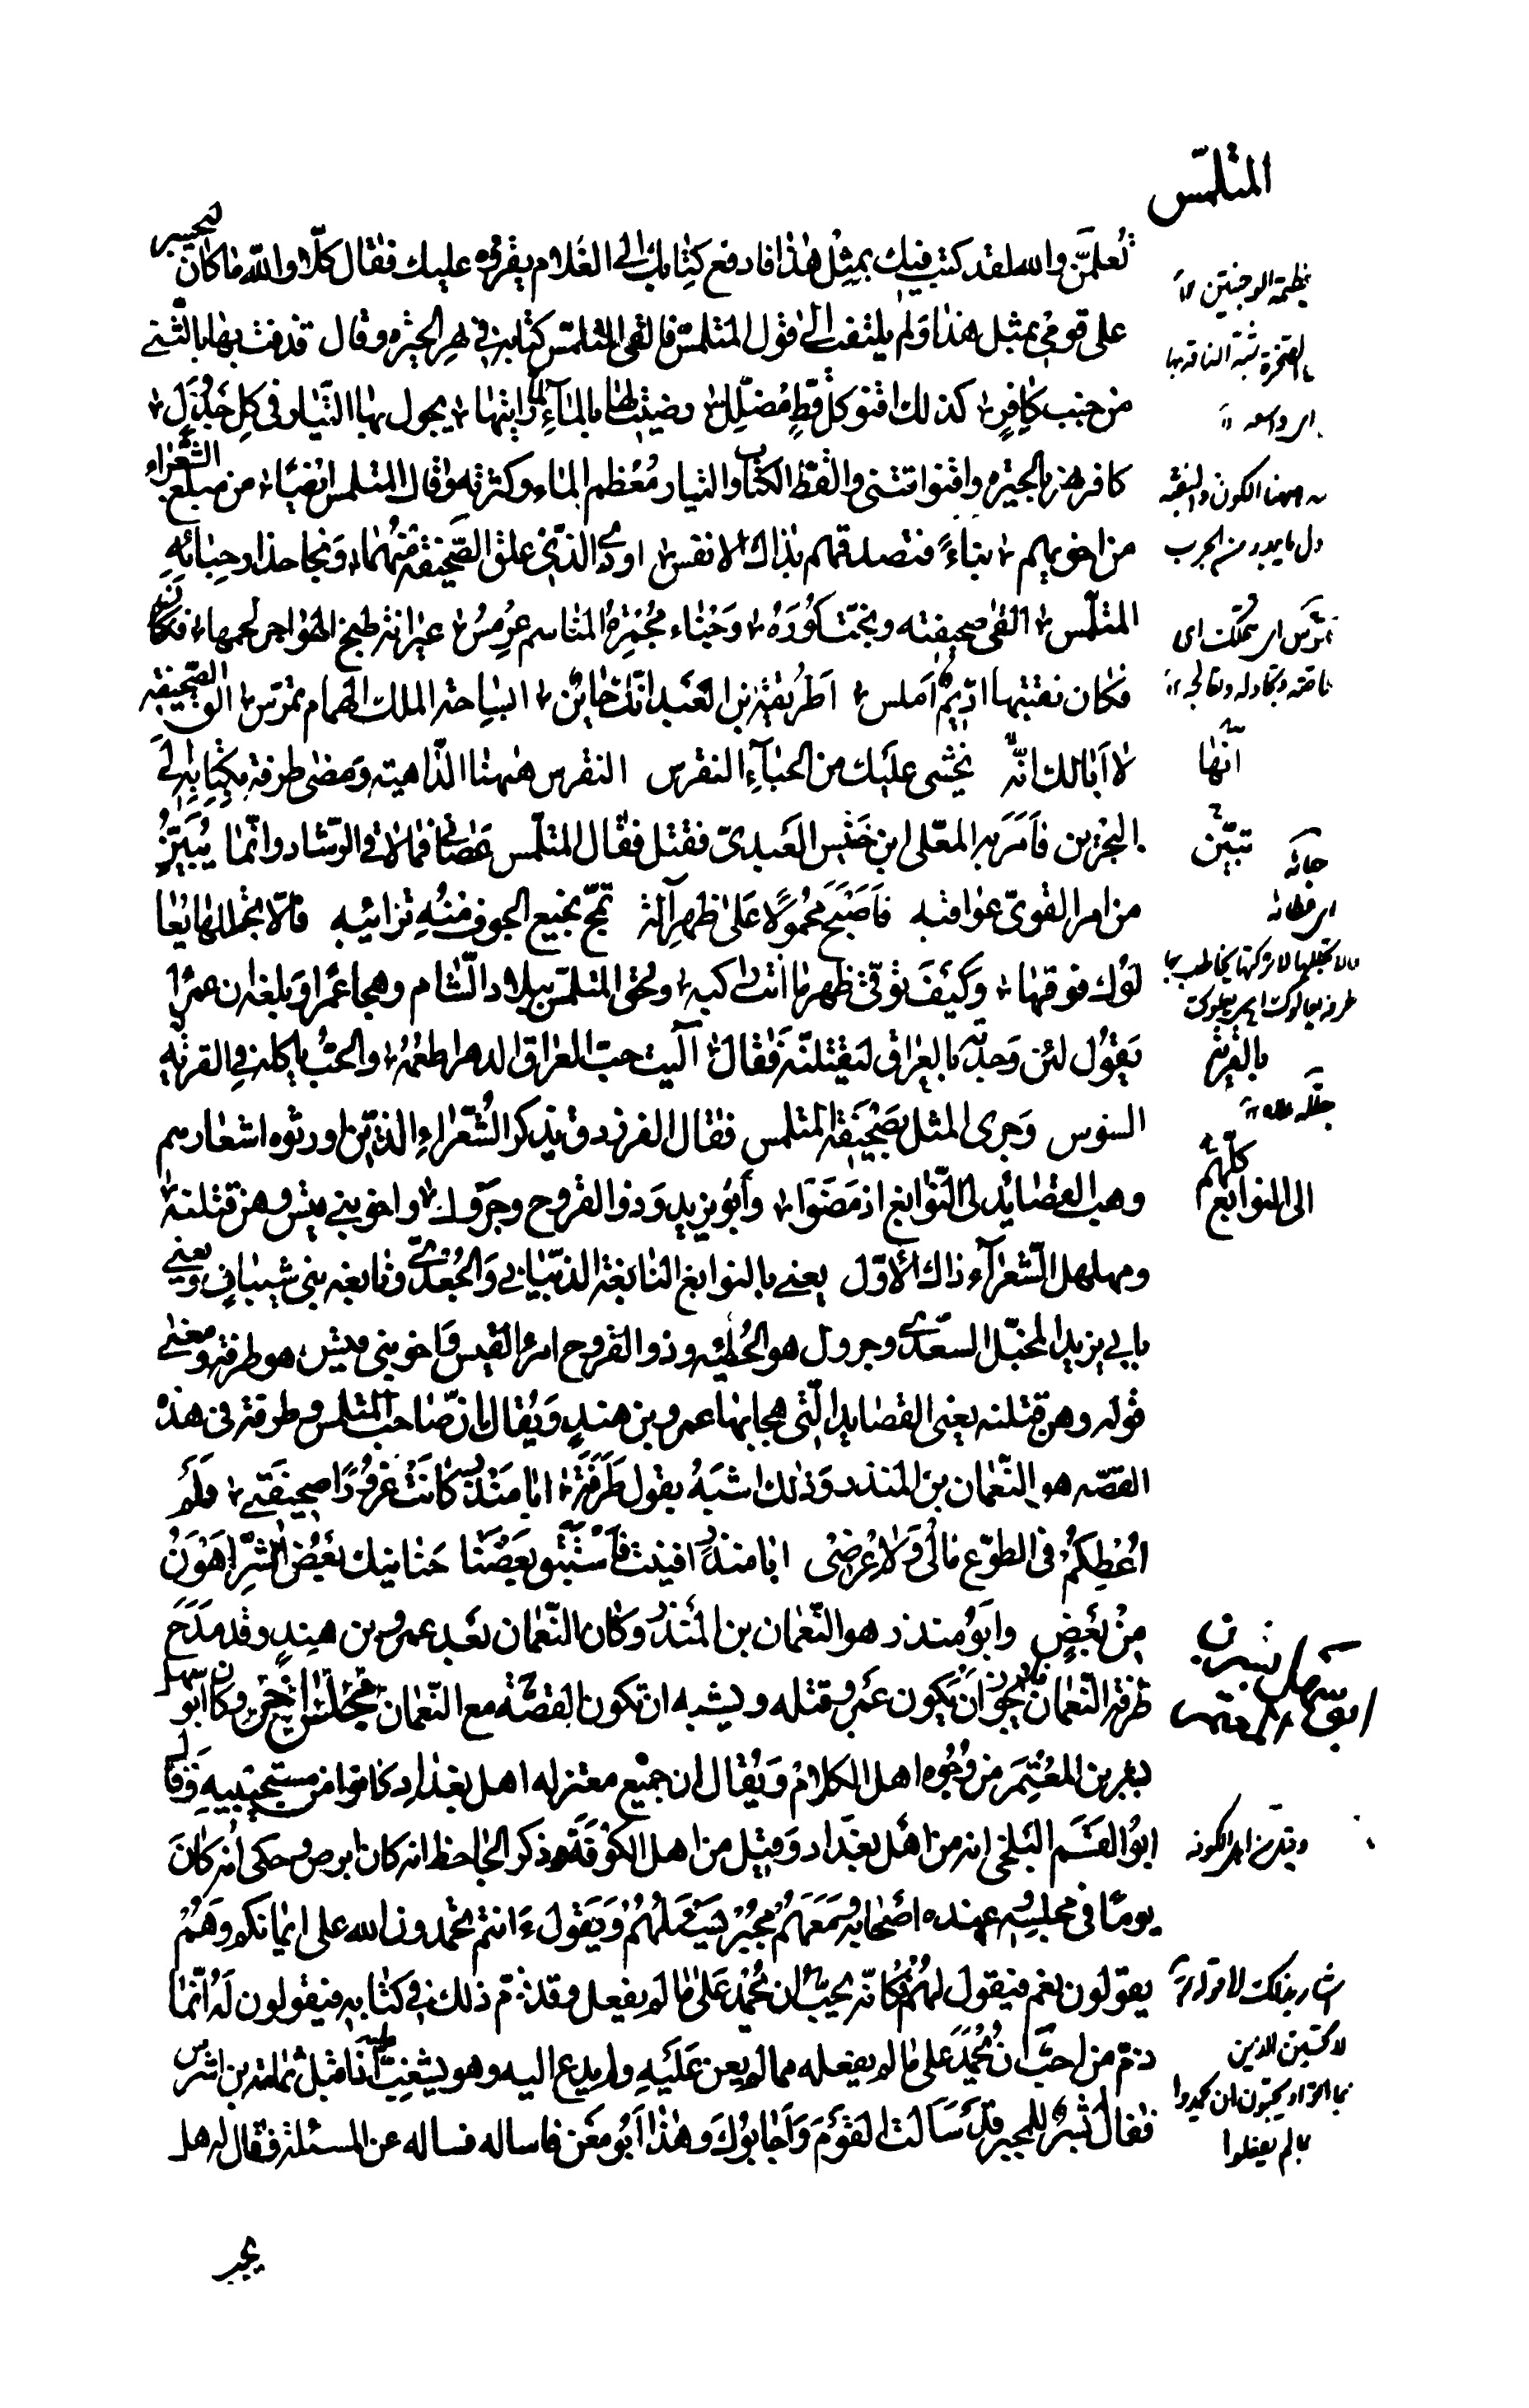 المتلمّس
تعلمنّ والله لقد كتب فيك بمثل هذا فادفع كتابك الى الغلام يقرؤه عليك فقال كلّا والله ما كان ليجسر
على قومي بمثل هذا ولم يلتفت الى قول المتلمّس فالقى المتلمّس كتابه في نهر الحيره وقال قذفت بها بالثني
من جنب كافر كذلك اقنو كل قطّ مضلّل رضيت لها بالماء لمّا رايتها يجول بها التيّار في كل جدول
كافر نهر بالحيره واقنوا اقتني والقطّ الكتاب والتيار معظم الماء وكثرته وقال المتلمس ايضًا من مبلغ الشعراء
من اخويهم نباءً فتصدقهم بذاك الانفس اودى الذي علق الصّحيفة منهما ونجا حذار حبائه
المتلمّس القى صحيفته ونجّت كوره وجناء مجمرة المناسم عرمس عيرانة طبخ الهواجر لحمها فكان
فكان نقبتها اديم املس اطريفة بن العبد انّك خائن ابساحة الملك الهمام تمرّس الق الصّحيفة
لا ابا لك انّه يخشى عليك من الحباء النقرس النقرس ههنا الدّاهيته ومضى طرفة بكتابه الى
البحرين فامر به المعلّى ابن حنش العبديّ فقتل فقال المتلمّس عصاني فما لاقى الرّشاد وانّما يُبيّن
من امر القويّ عواقبه فاصبح محمولًا على ظهر آلة تمجّ نجيع الجوف منه ترائبه فالّا تجلّلها يعا
لوك فوقها وكيف توقّى ظهر ما انت راكبه ولحق المتلمّس ببلاد الشام وهجا عمرا وبلغه ان عمرًا
يقول لئن وجدته بالعراق ليقتلنّه فقال آليت حبّ العراق الدهر اطعمه والحبّ ياكله في القرية
السوس وجرى المثل بصحيفة المتلمس فقال الفرزدق يذكر الشعراء الذين اورثوه اشعارهم
وهب القصائد لى النّوابغ اذ مضوا وابو يزيد وذو القروح وجرول واخو بني قيس وهن قتلنه
ومهلهل الشعراء ذاك الاوّل يعني بالنوابغ النابغة الذبياني والجعديّ ونابغه بني شيبان ويعني
بابي يزيد المخبّل السعديّ وجرول هو الحُطيئه وذو القروح امرؤ القيس واخو بني قيس هو طرفة ومعنى
قوله وهن قتلنه يعني القصايد الّتي هجا بها عمرو بن هند ويقال ان صاحب المتلمس وطرفة في هذه
القصّه هو النّعمان بن المنذر وذلك اشبه بقول طرفة ابا منذر كانت غرورًا صحيفتي فلم
اعطكم في الطوع مالى ولا عرضى ابا منذر افنيت فاستبق بعضنا حنانيك بعض الشرّ اهون
من بعض وابو منذر هو النّعمان بن المنذر وكان النّعمان بعد عمرو بن هند وقد مدح
طرفة النّعمان فلا يجوز ان يكون عمرو قتله ويشبه ان تكون القصّة مع النّعمان مجلس آخر وكان ابو سهل
بشر بن المعتمر من وجوه اهل الكلام ويقال ان جميع معتزله اهل بغداد كانوا من مستجيبيه وقال
ابو القسم البلخي انه من اهل بغداد وقيل من اهل الكوفة وذكر الجاحظ انه كان ابرص وحكى انه كان
يومًا في مجلسه وعنده اصحابه ومعهم مجبر يسئلهم ويقول ءانتم تحمدون الله على ايمانكم وهم
يقولون نعم فيقول لهم فكانّه يحبّ ان يُحمد على ما لم يفعل وقد ذمّ ذلك في كتابه فيقولون له انّما
ذمّ من احبّ ان يُحمد على ما لم يفعله مما لم يعن عليه ولم يدع اليه وهو يشغب اذ اقبل ثمامة بن اشرس
فقال بشر للمجبر قد سالت القوم واجابوك وهذا ابو معن فاساله فساله عن المسئلة فقال له هل
انّها
تبيّن
بالقرية
كلّهم
الى النوابغ
ابو سهل بشر بن المعتمر
وقيل من اهل الكوفه
بما لم يفعلوا
يجب